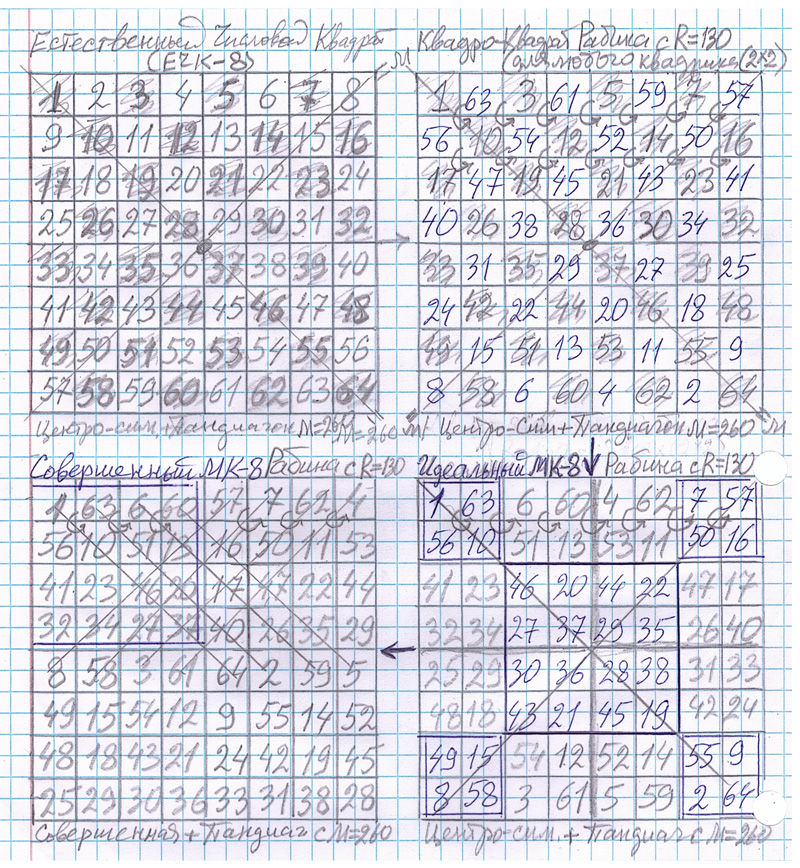 Естественный Числовой Квадрат
(ЕЧК-8)
М
1 2 3 4 5 6 7 8
9 10 11 12 13 14 15 16
17 18 19 20 21 22 23 24
25 26 27 28 29 30 31 32
33 34 35 36 37 38 39 40
41 42 43 44 45 46 47 48
49 50 51 52 53 54 55 56
57 58 59 60 61 62 63 64
Центро-сим.+Пандиагон М=260
М=260
Квадро-Квадрат Рабина с R=130
(для любого квадрика (2×2)
1 63 3 61 5 59 7 57
56 10 54 12 52 14 50 16
17 47 19 45 21 43 23 41
40 26 38 28 36 30 34 32
33 31 35 29 37 27 39 25
24 42 22 44 20 46 18 48
49 15 51 13 53 11 55 9
8 58 6 60 4 62 2 64
М Центро-Сим+Пандиагон М=260 М
Совершенный МК-8 Рабина с R=130
1 63 6 60 57 7 62 4
56 10 51 13 16 50 11 53
41 23 46 20 17 47 22 44
32 34 27 37 40 26 35 29
8 58 3 61 64 2 59 5
49 15 54 12 9 55 14 52
48 18 43 21 24 42 19 45
25 29 30 36 33 31 38 28
Совершенная + Пандиаг с М=260
Идеальный МК-8 Рабина с R=130
1 63 6 60 4 62 7 57
56 10 51 13 53 11 50 16
41 23 46 20 44 22 47 17
32 34 27 37 29 35 26 40
25 29 30 36 28 38 31 33
48 18 43 21 45 19 42 24
49 15 54 12 52 14 55 9
8 58 3 61 5 59 2 64
Центро-сим. + Пандиаг с М=260